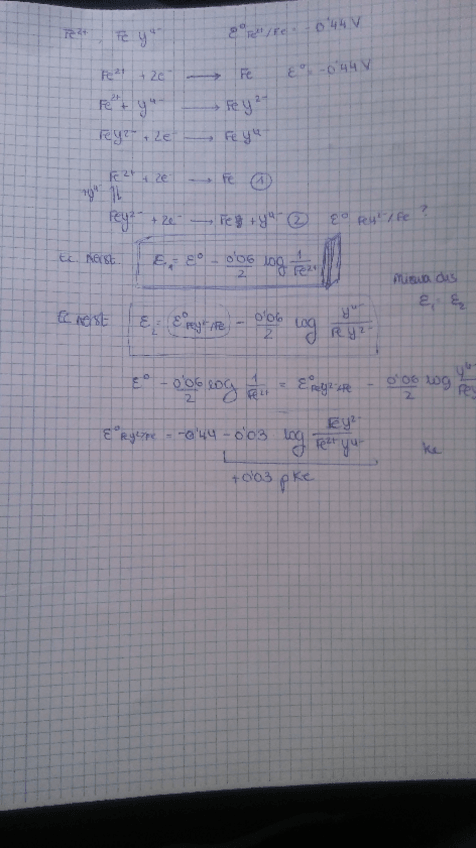 Fe²⁺, Fe y⁴⁻ ε⁰ Fe²⁺/Fe = -0'44 V
Fe²⁺ + 2e⁻ → Fe ε⁰ = -0'44 V
Fe²⁺ + y⁴⁻ → Fe y²⁻
Fe y²⁻ + 2e⁻ → Fe y⁴⁻
Fe²⁺ + 2e⁻ → Fe ①
y⁴⁻ ⇅
Fe y²⁻ + 2e⁻ → Fe + y⁴⁻ ② ε⁰ Fe y²⁻/Fe ?
Ec Nerst. ε₁ = ε⁰ - 0'06/2 log 1/Fe²⁺
ε₁ = ε₂
Ec Nerst ε₂ = ε⁰ Fe y²⁻/Fe - 0'06/2 log y⁴⁻/Fe y²⁻
ε⁰ - 0'06/2 log 1/Fe²⁺ = ε⁰ Fe y²⁻/Fe - 0'06/2 log y⁴⁻/Fe y
ε⁰ Fe y²⁻/Fe = -0'44 - 0'03 log Fe y²⁻/Fe²⁺ y⁴⁻ Kc
+0'03 pKc